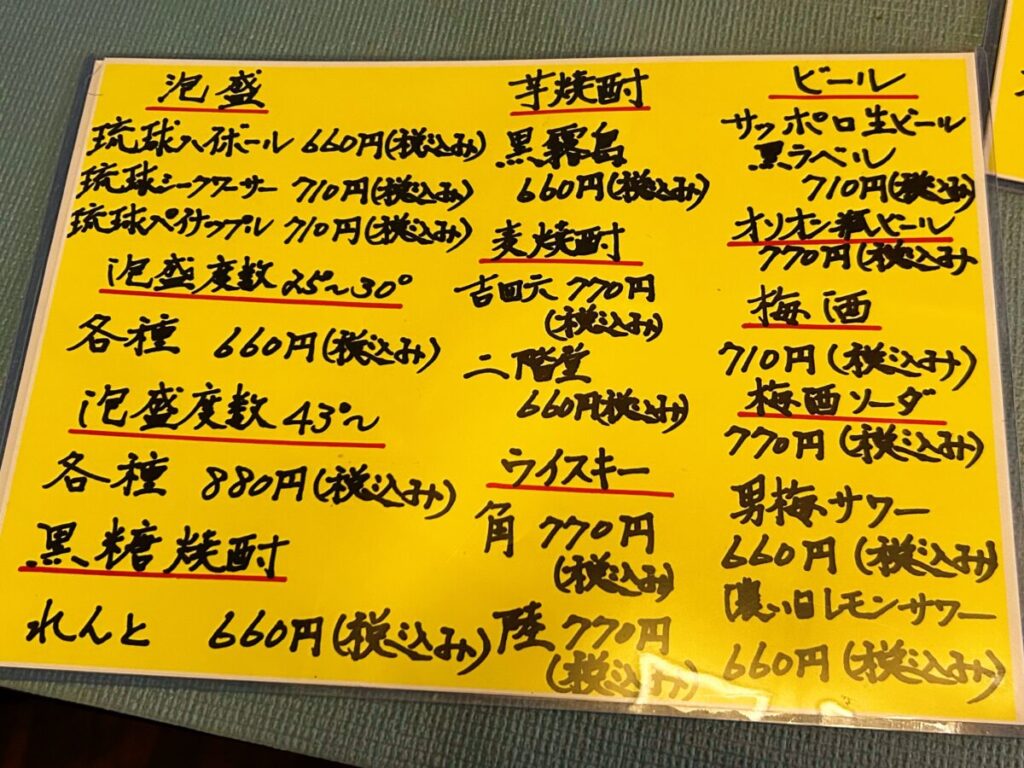 泡盛
琉球ハイボール 660円(税込み)
琉球シークワーサー 710円(税込み)
琉球パイナップル 710円(税込み)
泡盛度数25°〜30°
各種 660円(税込み)
泡盛度数43°〜
各種 880円(税込み)
黒糖焼酎
れんと 660円(税込み)
芋焼酎
黒霧島
660円(税込み)
麦焼酎
吉四六 770円
(税込み)
二階堂
660円(税込み)
ウイスキー
角 770円
(税込み)
陸 770円
(税込み)
ビール
サッポロ生ビール
黒ラベル
710円(税込み)
オリオン瓶ビール
770円(税込み
梅酒
710円(税込み)
梅酒ソーダ
770円(税込み)
男梅サワー
660円(税込み)
濃い目レモンサワー
660円(税込み)